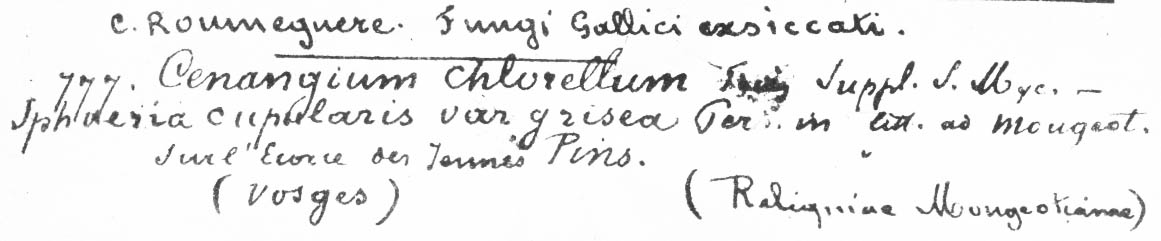 C. Roumeguere. Fungi Gallici exsiccati.
777. Cenangium chlorellum Suppl. S. Myc. –
Sphaeria cupularis var grisea Pers. in litt. ad Mougeot.
Sur l'Ecorce des Jeunes Pins.
(Vosges) (Reliquiae Mougeotianae)